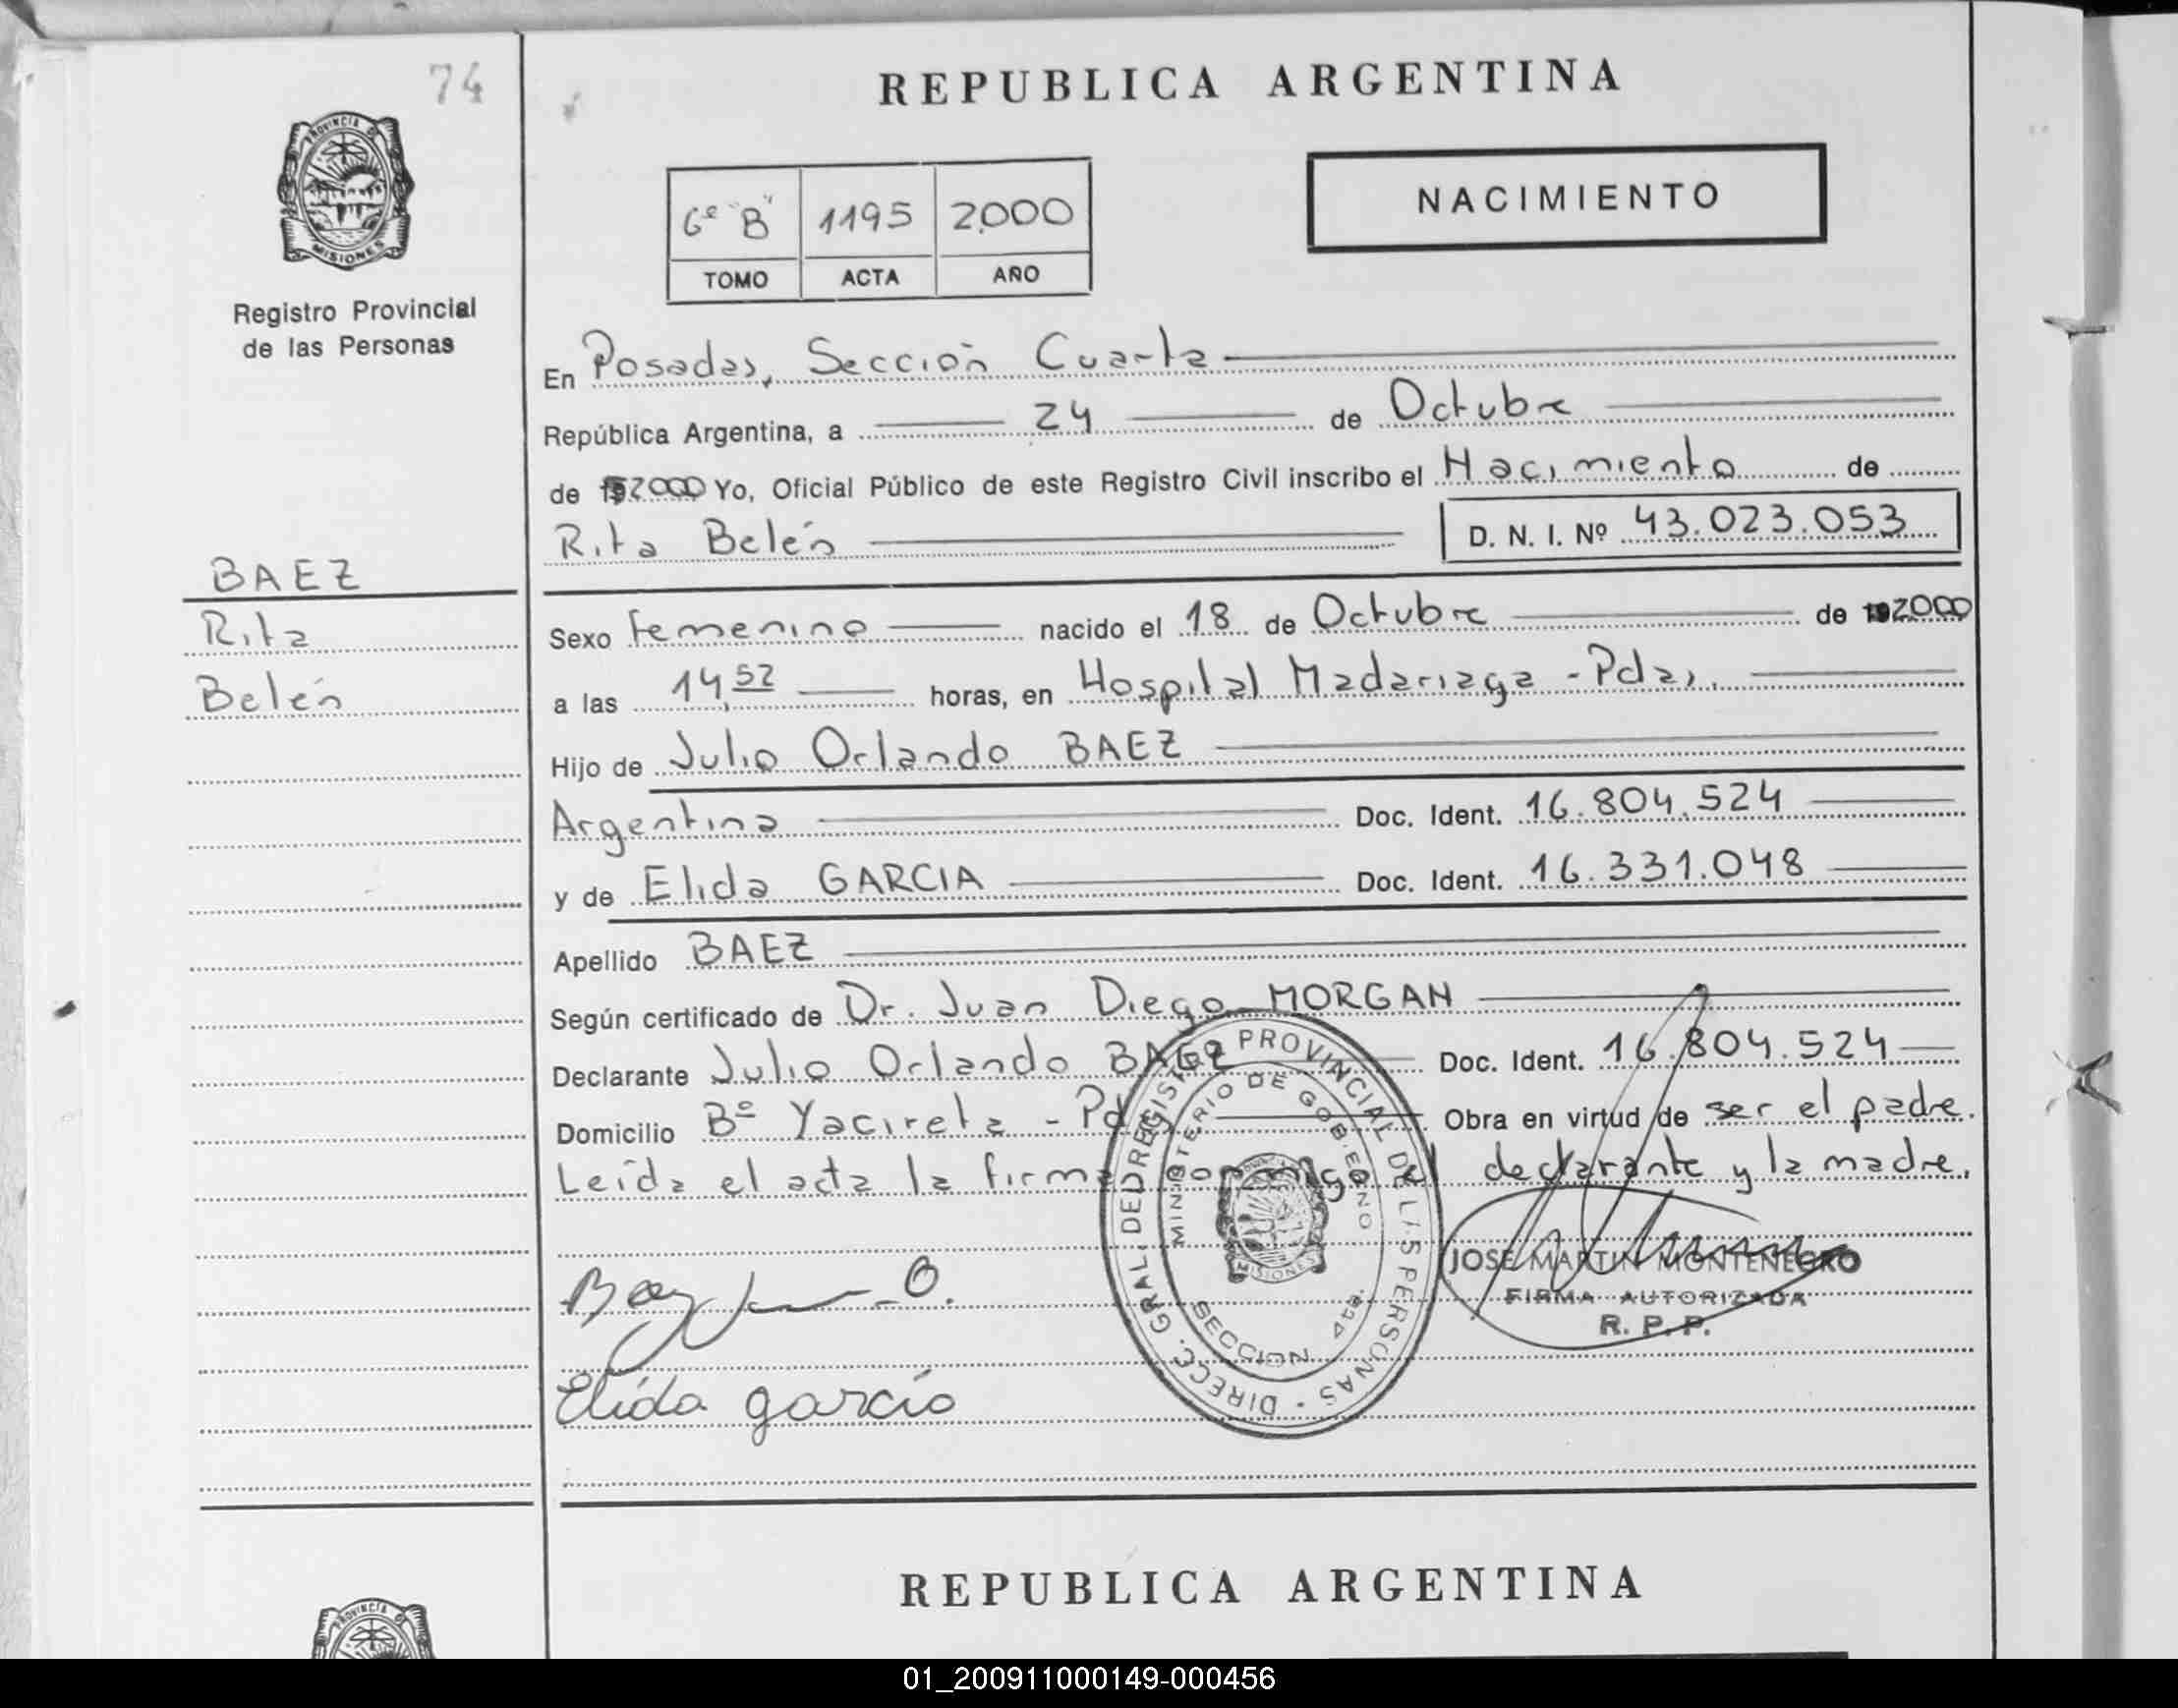 74
REPUBLICA ARGENTINA
PROVINCIA D
MISIONES
NACIMIENTO
6º "B" 1195 2.000
TOMO ACTA AÑO
Registro Provincial
de las Personas
En Posadas, Sección Cuarta
República Argentina, a 24 de Octubre
de 2000 Yo, Oficial Público de este Registro Civil inscribo el Nacimiento de
Rita Belén D. N. I. Nº 43.023.053
BAEZ
Rita
Belén
Sexo Femenino nacido el 18 de Octubre de 2000
a las 14,52 horas, en Hospital Madariaga - Pdas.
Hijo de Julio Orlando BAEZ
Argentina Doc. Ident. 16.804.524
y de Elida GARCIA Doc. Ident. 16.331.048
Apellido BAEZ
Según certificado de Dr. Juan Diego MORGAN
Declarante Julio Orlando BAEZ Doc. Ident. 16.804.524
Domicilio Bº Yacireta - Pd Obra en virtud de ser el padre.
Leída el acta la firma conmigo el declarante y la madre.
DIRECC. GRAL. DED REGISTRO PROVINCIAL DE LAS PERSONAS
MINISTERIO DE GOBIERNO
MISIONES
SECCION 4ta.
JOSE MARTIN MONTENEGRO
FIRMA AUTORIZADA
R. P. P.
Elida garcia
REPUBLICA ARGENTINA
PROVINCIA D
01_200911000149-000456